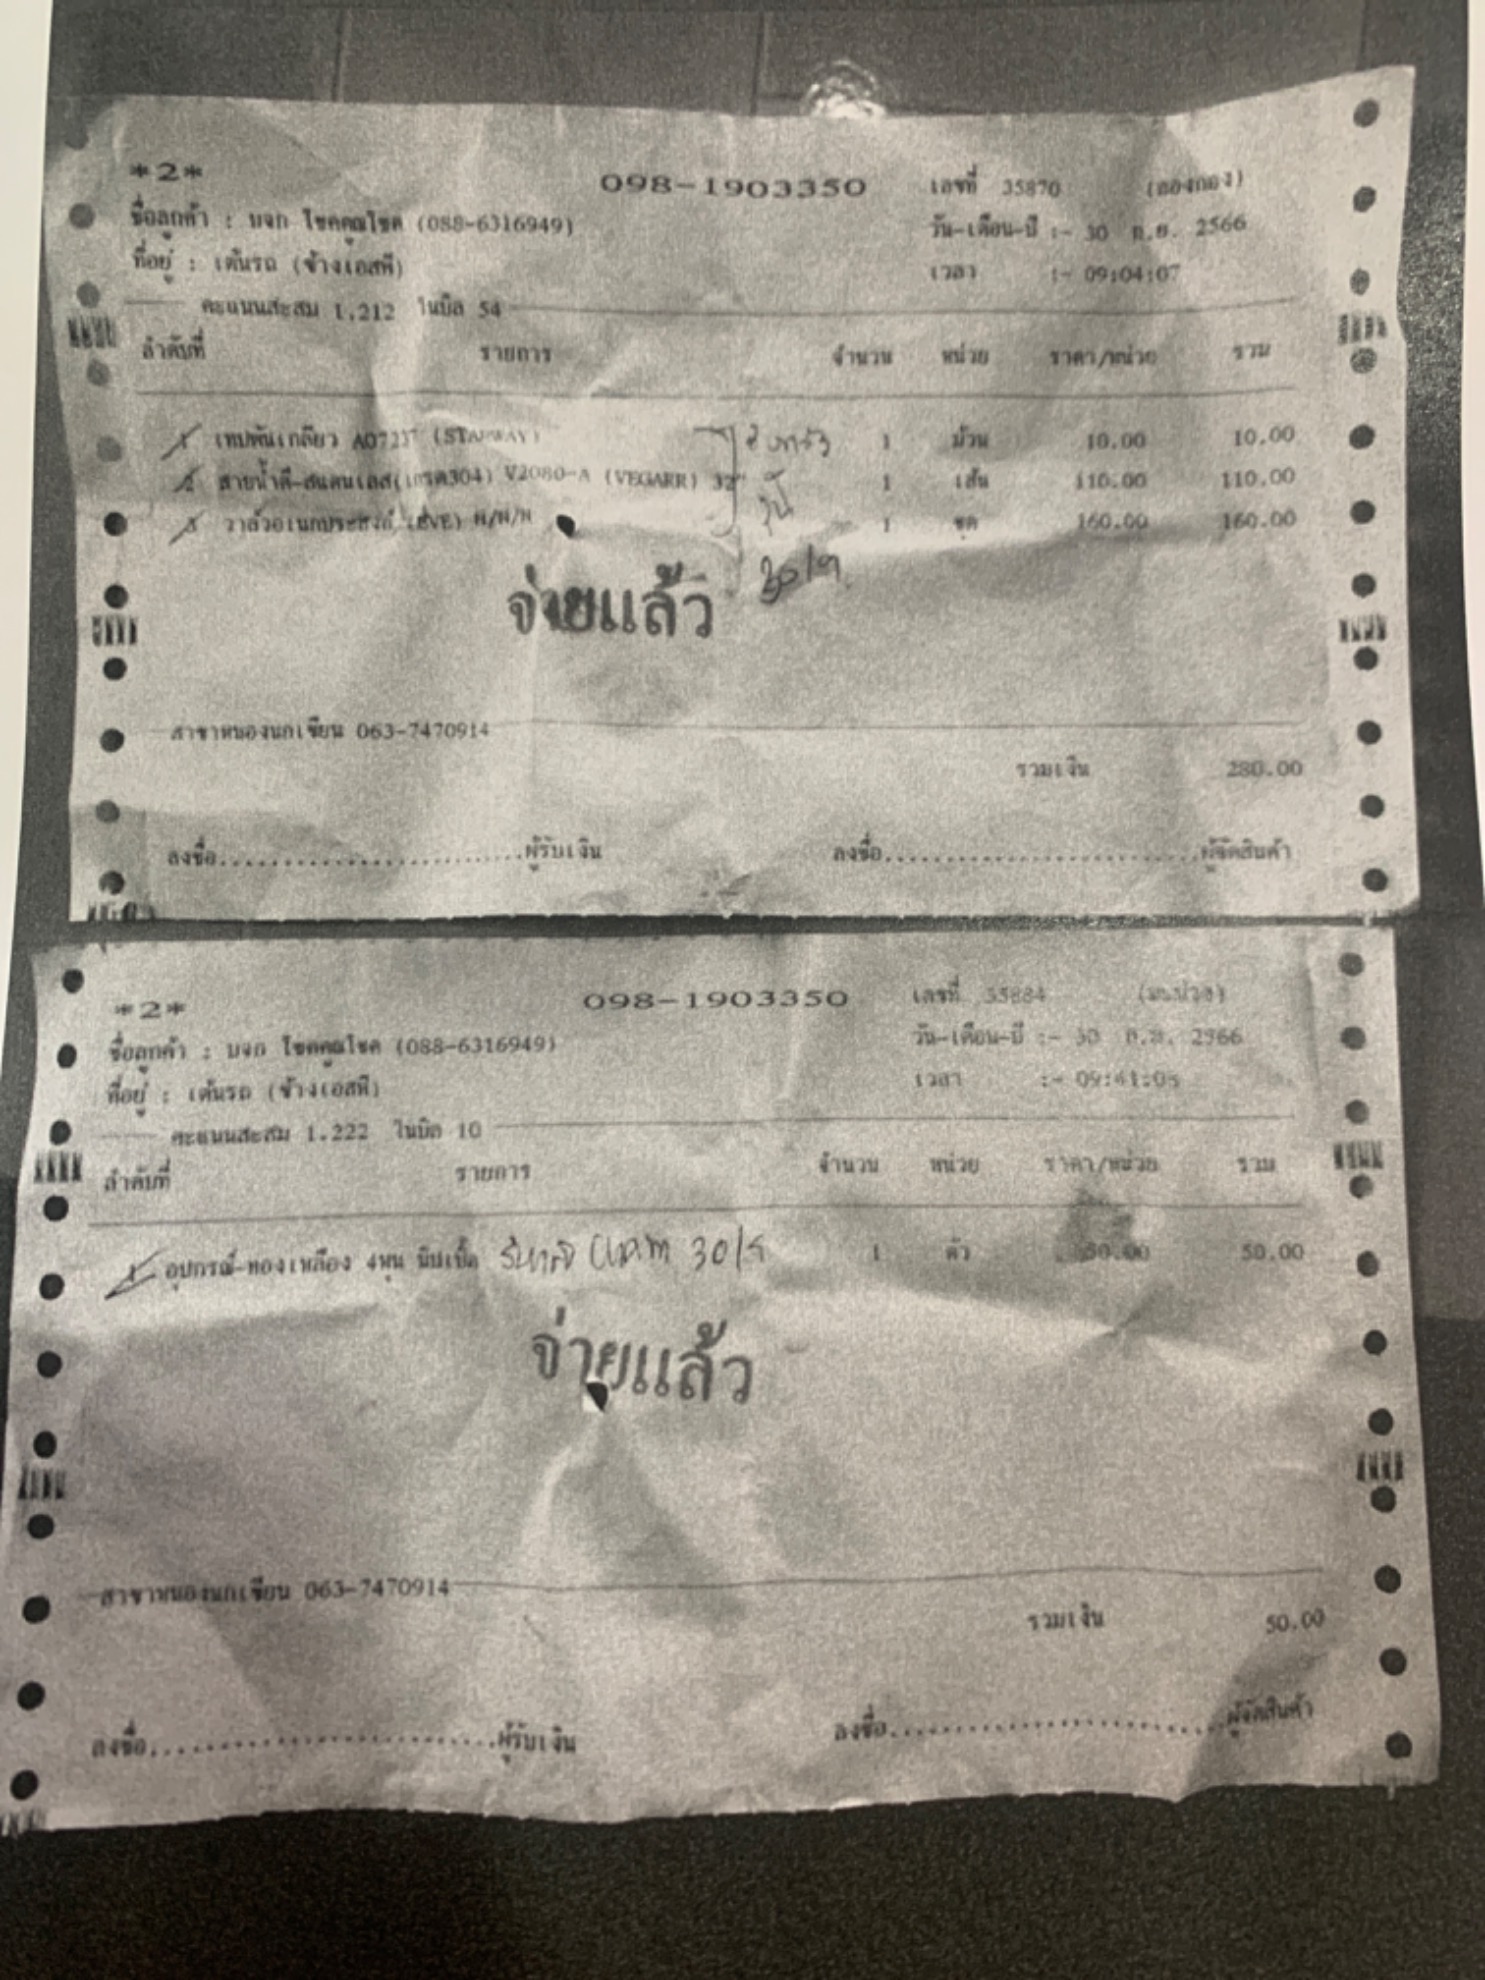 *2* 098-1903350 เลขที่ 35870 (ลองกอง)
ชื่อลูกค้า : บจก โชคคูณโชค (088-6316949) วัน-เดือน-ปี :- 30 ก.ย. 2566
ที่อยู่ : เต้นรถ (ช้างเอสพี) เวลา :- 09:04:07
คะแนนสะสม 1,212 ในบิล 54
ลำดับที่ รายการ จำนวน หน่วย ราคา/หน่วย รวม
1 เทปพันเกลียว (STARWAY) 1 ม้วน 10.00 10.00
2 สายน้ำดี-สแตนเลส(เกรด304) V2080-A (VEGARR) 32" 1 เส้น 110.00 110.00
3 วาล์วอเนกประสงค์ (EVE) N/N/N 1 ชุด 160.00 160.00
30/9
จ่ายแล้ว
สาขาหนองนกเขียน 063-7470914
รวมเงิน 280.00
ลงชื่อ........................ผู้รับเงิน ลงชื่อ........................ผู้จัดสินค้า
*2* 098-1903350 เลขที่ 35884 (มะม่วง)
ชื่อลูกค้า : บจก โชคคูณโชค (088-6316949) วัน-เดือน-ปี :- 30 ก.ย. 2566
ที่อยู่ : เต้นรถ (ช้างเอสพี) เวลา
คะแนนสะสม 1,222 ในบิล 10
ลำดับที่ รายการ จำนวน หน่วย ราคา/หน่วย รวม
1 อุปกรณ์-ทองเหลือง 4หุน นิปเปิ้ล 30/9 1 ตัว 50.00 50.00
จ่ายแล้ว
สาขาหนองนกเขียน 063-7470914
รวมเงิน 50.00
ลงชื่อ........................ผู้รับเงิน ลงชื่อ........................ผู้จัดสินค้า